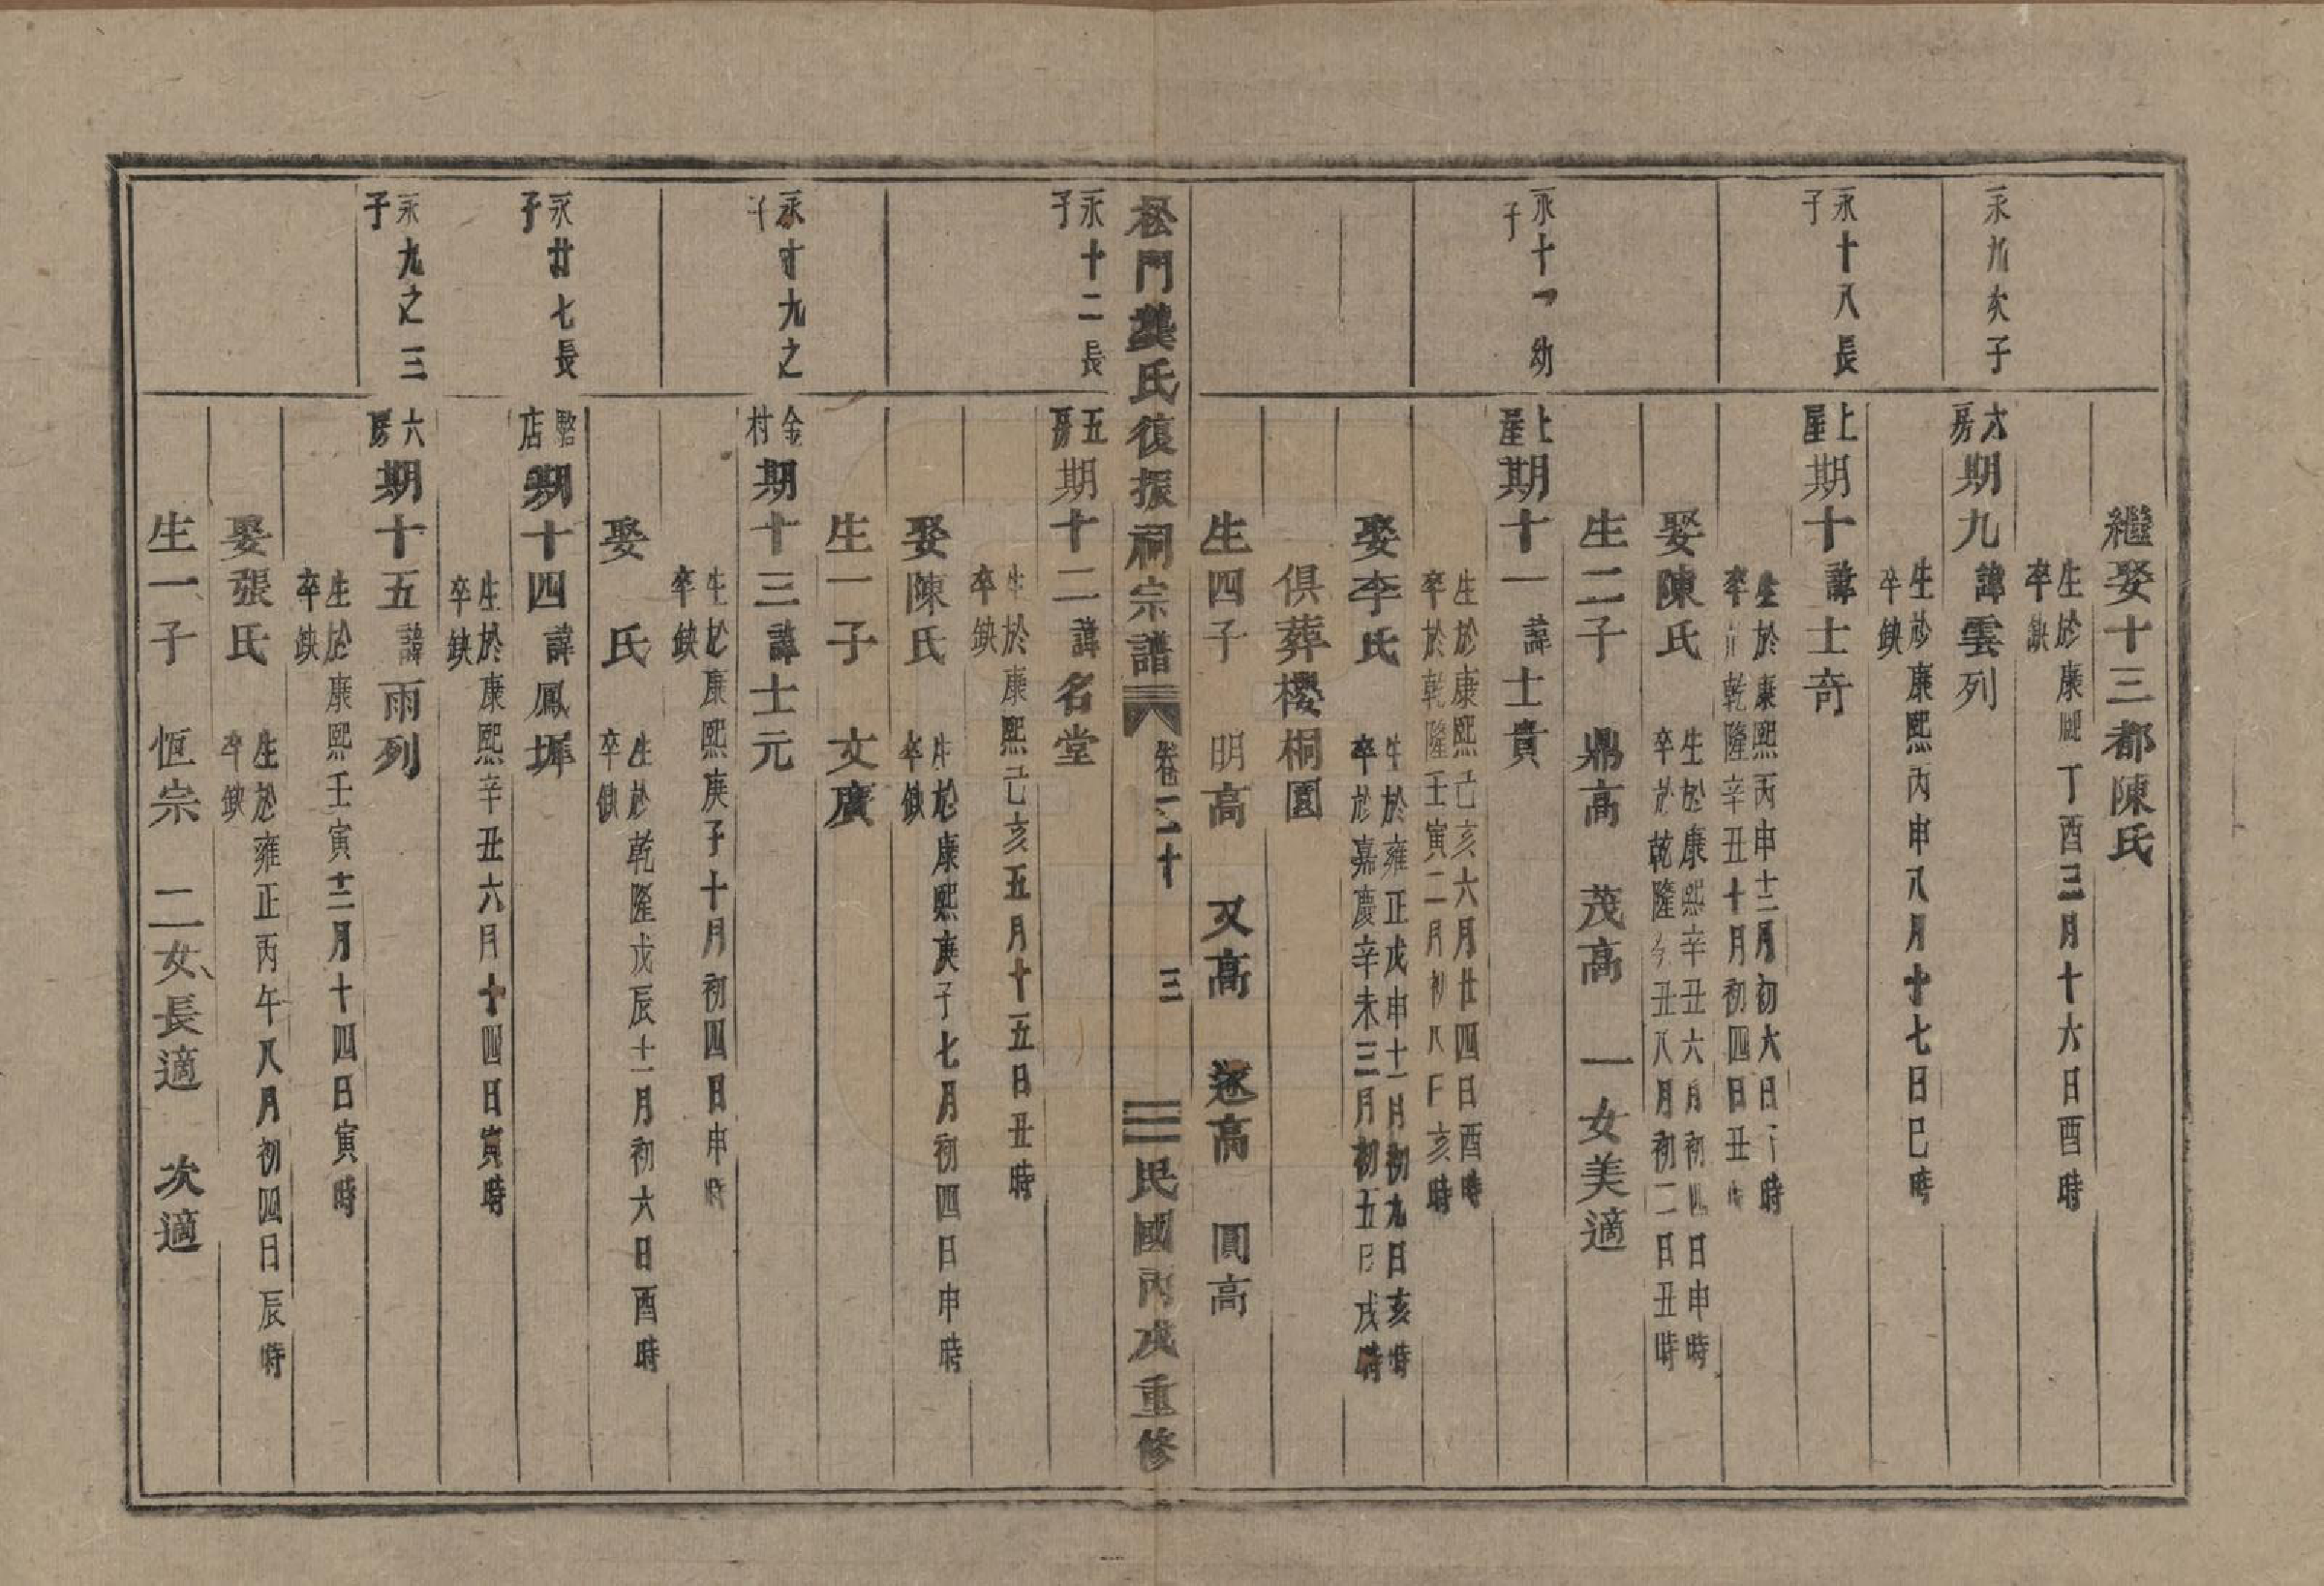 繼娶十三都陳氏
生於康熙丁酉三月十六日酉時
卒缺
永九次子
六房期九 諱雲列
生於康熙丙申八月十七日巳時
卒缺
永十八長子
上屋期十 諱士奇
生於康熙丙申十二月初六日 時
卒於乾隆辛丑十月初四日丑時
娶陳氏
生於康熙辛丑六月初四日申時
卒於乾隆 丑八月初二日丑時
生二子 鼎高 茂高 一女美適
永十一幼子
上屋期十一 諱士貴
生於康熙己亥六月廿四日酉時
卒於乾隆壬寅二月初八日亥時
娶李氏
生於雍正戊申十一月初九日亥時
卒於嘉慶辛未三月初五日戌時
俱葬櫻桐園
生四子 明高 又高 遂高 圓高
松門龔氏復振祠宗譜 卷二十 三 民國丙戌重修
永十二長子
五房期十二 諱名堂
生於康熙己亥五月十五日丑時
卒缺
娶陳氏
生於康熙庚子七月初四日申時
卒缺
生一子 文廣
永十九之子
金村期十三 諱士元
生於康熙庚子十月初四日申時
卒缺
娶 氏
生於乾隆戊辰十一月初六日酉時
卒缺
永廿七長子
店期十四 諱鳳墀
生於康熙辛丑六月十四日寅時
卒缺
永九之三子
六房期十五 諱雨列
生於康熙壬寅十二月十四日寅時
卒缺
娶張氏
生於雍正丙午八月初四日辰時
卒缺
生一子 恒宗 二女長適 次適